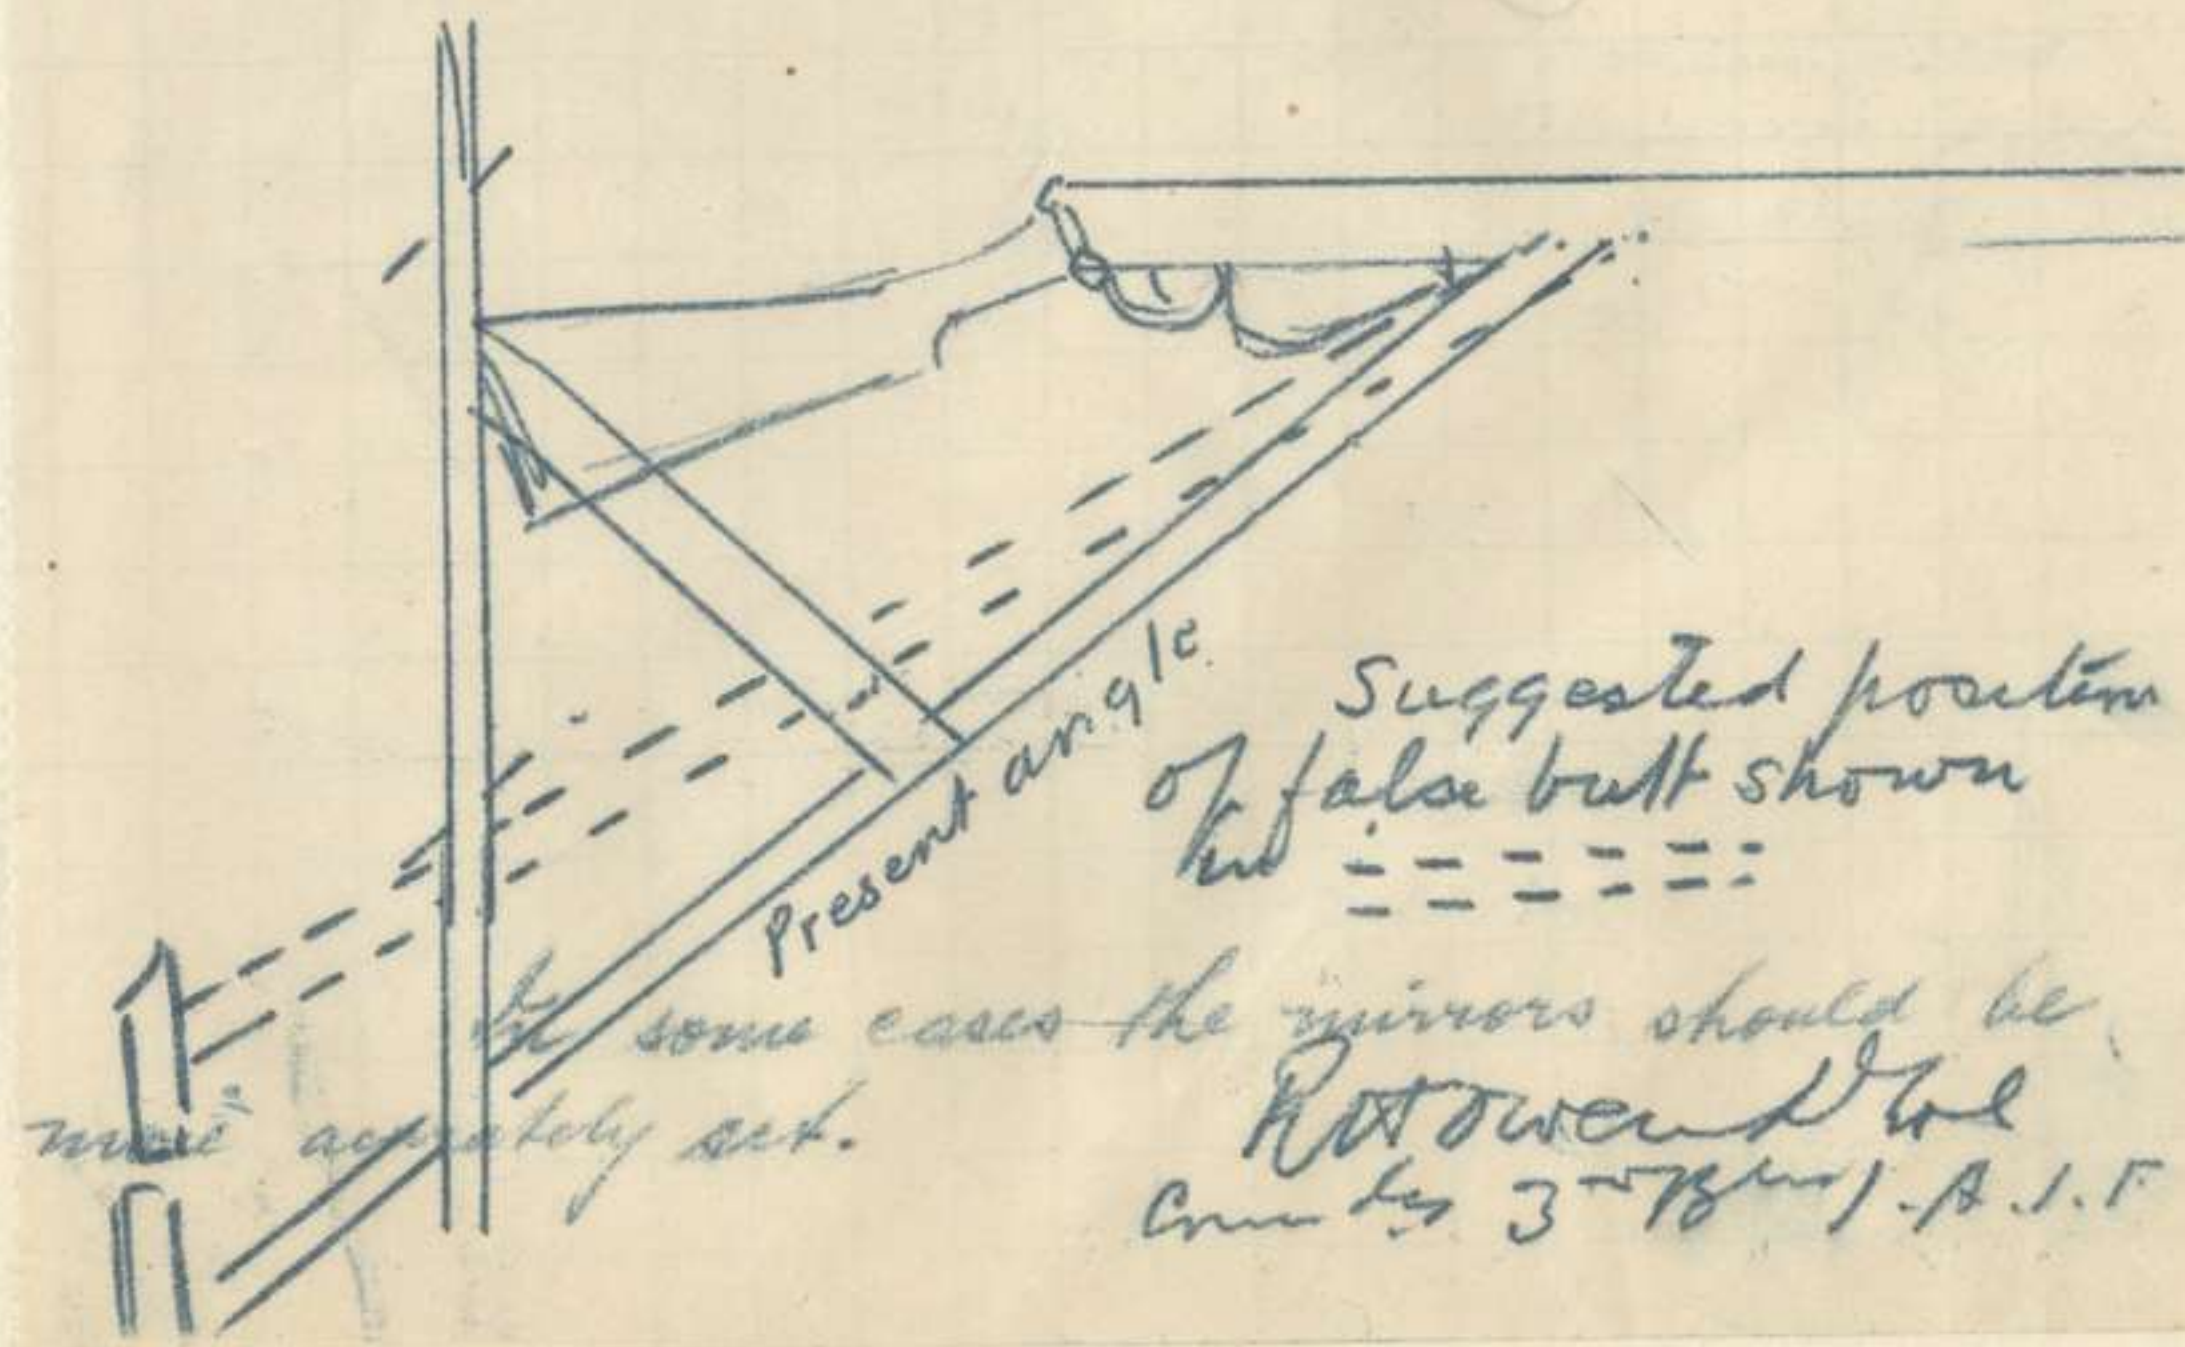 Present angle
Suggested position
of false butt shown
in
In some cases the mirrors should be
more accurately set.
R H Owen Lt Col
Comdg 3rd Bn 1. A.I.F